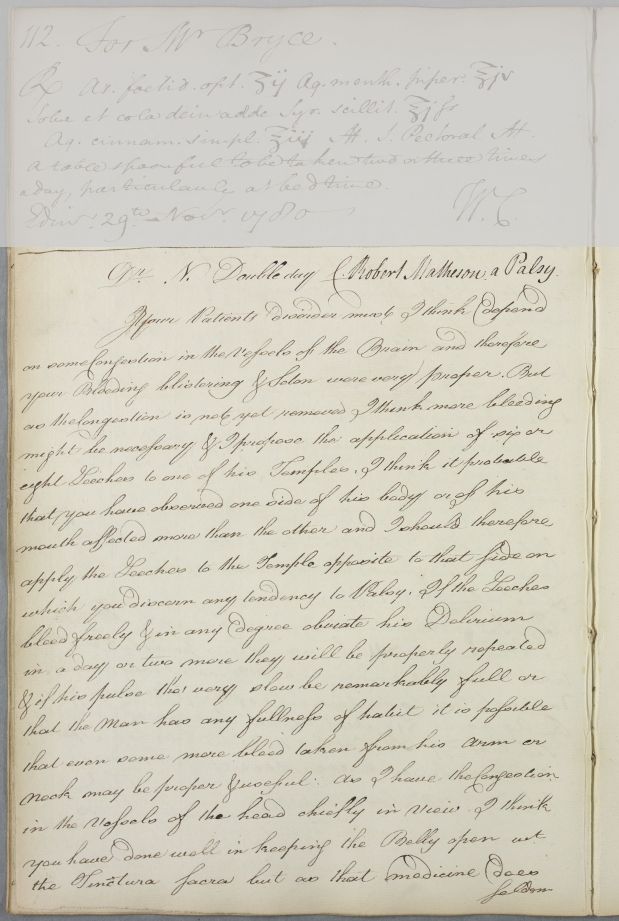 112. For Mr Bryce.
℞ As. foetid. opt. ʒij Aq. menth. piper. ℥jv
Solve et cola dein adde Syr. scillit. ℥jſs
Aq. cinnam. simpl. ℥iij M. S. Pectoral M.
a table spoonful to be taken two or three times
a day, particularly at bed time.
Edinr. 29th Novr. 1780 W. C.
N. Doubleday C. Robert Matheson a Palsy.
Your Patients disorder must I think depend
on some Congestion in the Vessels of the Brain and therefore
your Bleeding blistering & Seton were very proper. But
as the Congestion is not yet removed I think more bleeding
might be necessary & I propose the application of six or
eight Leeches to one of his Temples. I think it probable
that you have observed one side of his body or of his
mouth affected more than the other and I should therefore
apply the Leeches to the Temple opposite to that side on
which you discern any tendency to Palsy. If the Leeches
bleed freely & in any degree obviate his Delirium
in a day or two more they will be properly repeated
& if his pulse tho' very slow be remarkably full or
that the Man has any fullness of habit it is possible
that even some more bleed taken from his Arm or
Neck may be proper & useful: As I have the Congestion
in the Vessels of the head chiefly in view I think
you have done well in keeping the Belly open wt.
the Tinctura sacra but as that medicine does
seldom